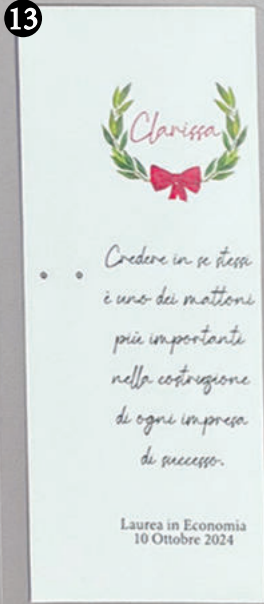 13
Clarissa
Credere in se stessi
è uno dei mattoni
più importanti
nella costruzione
di ogni impresa
di successo.
Laurea in Economia
10 Ottobre 2024